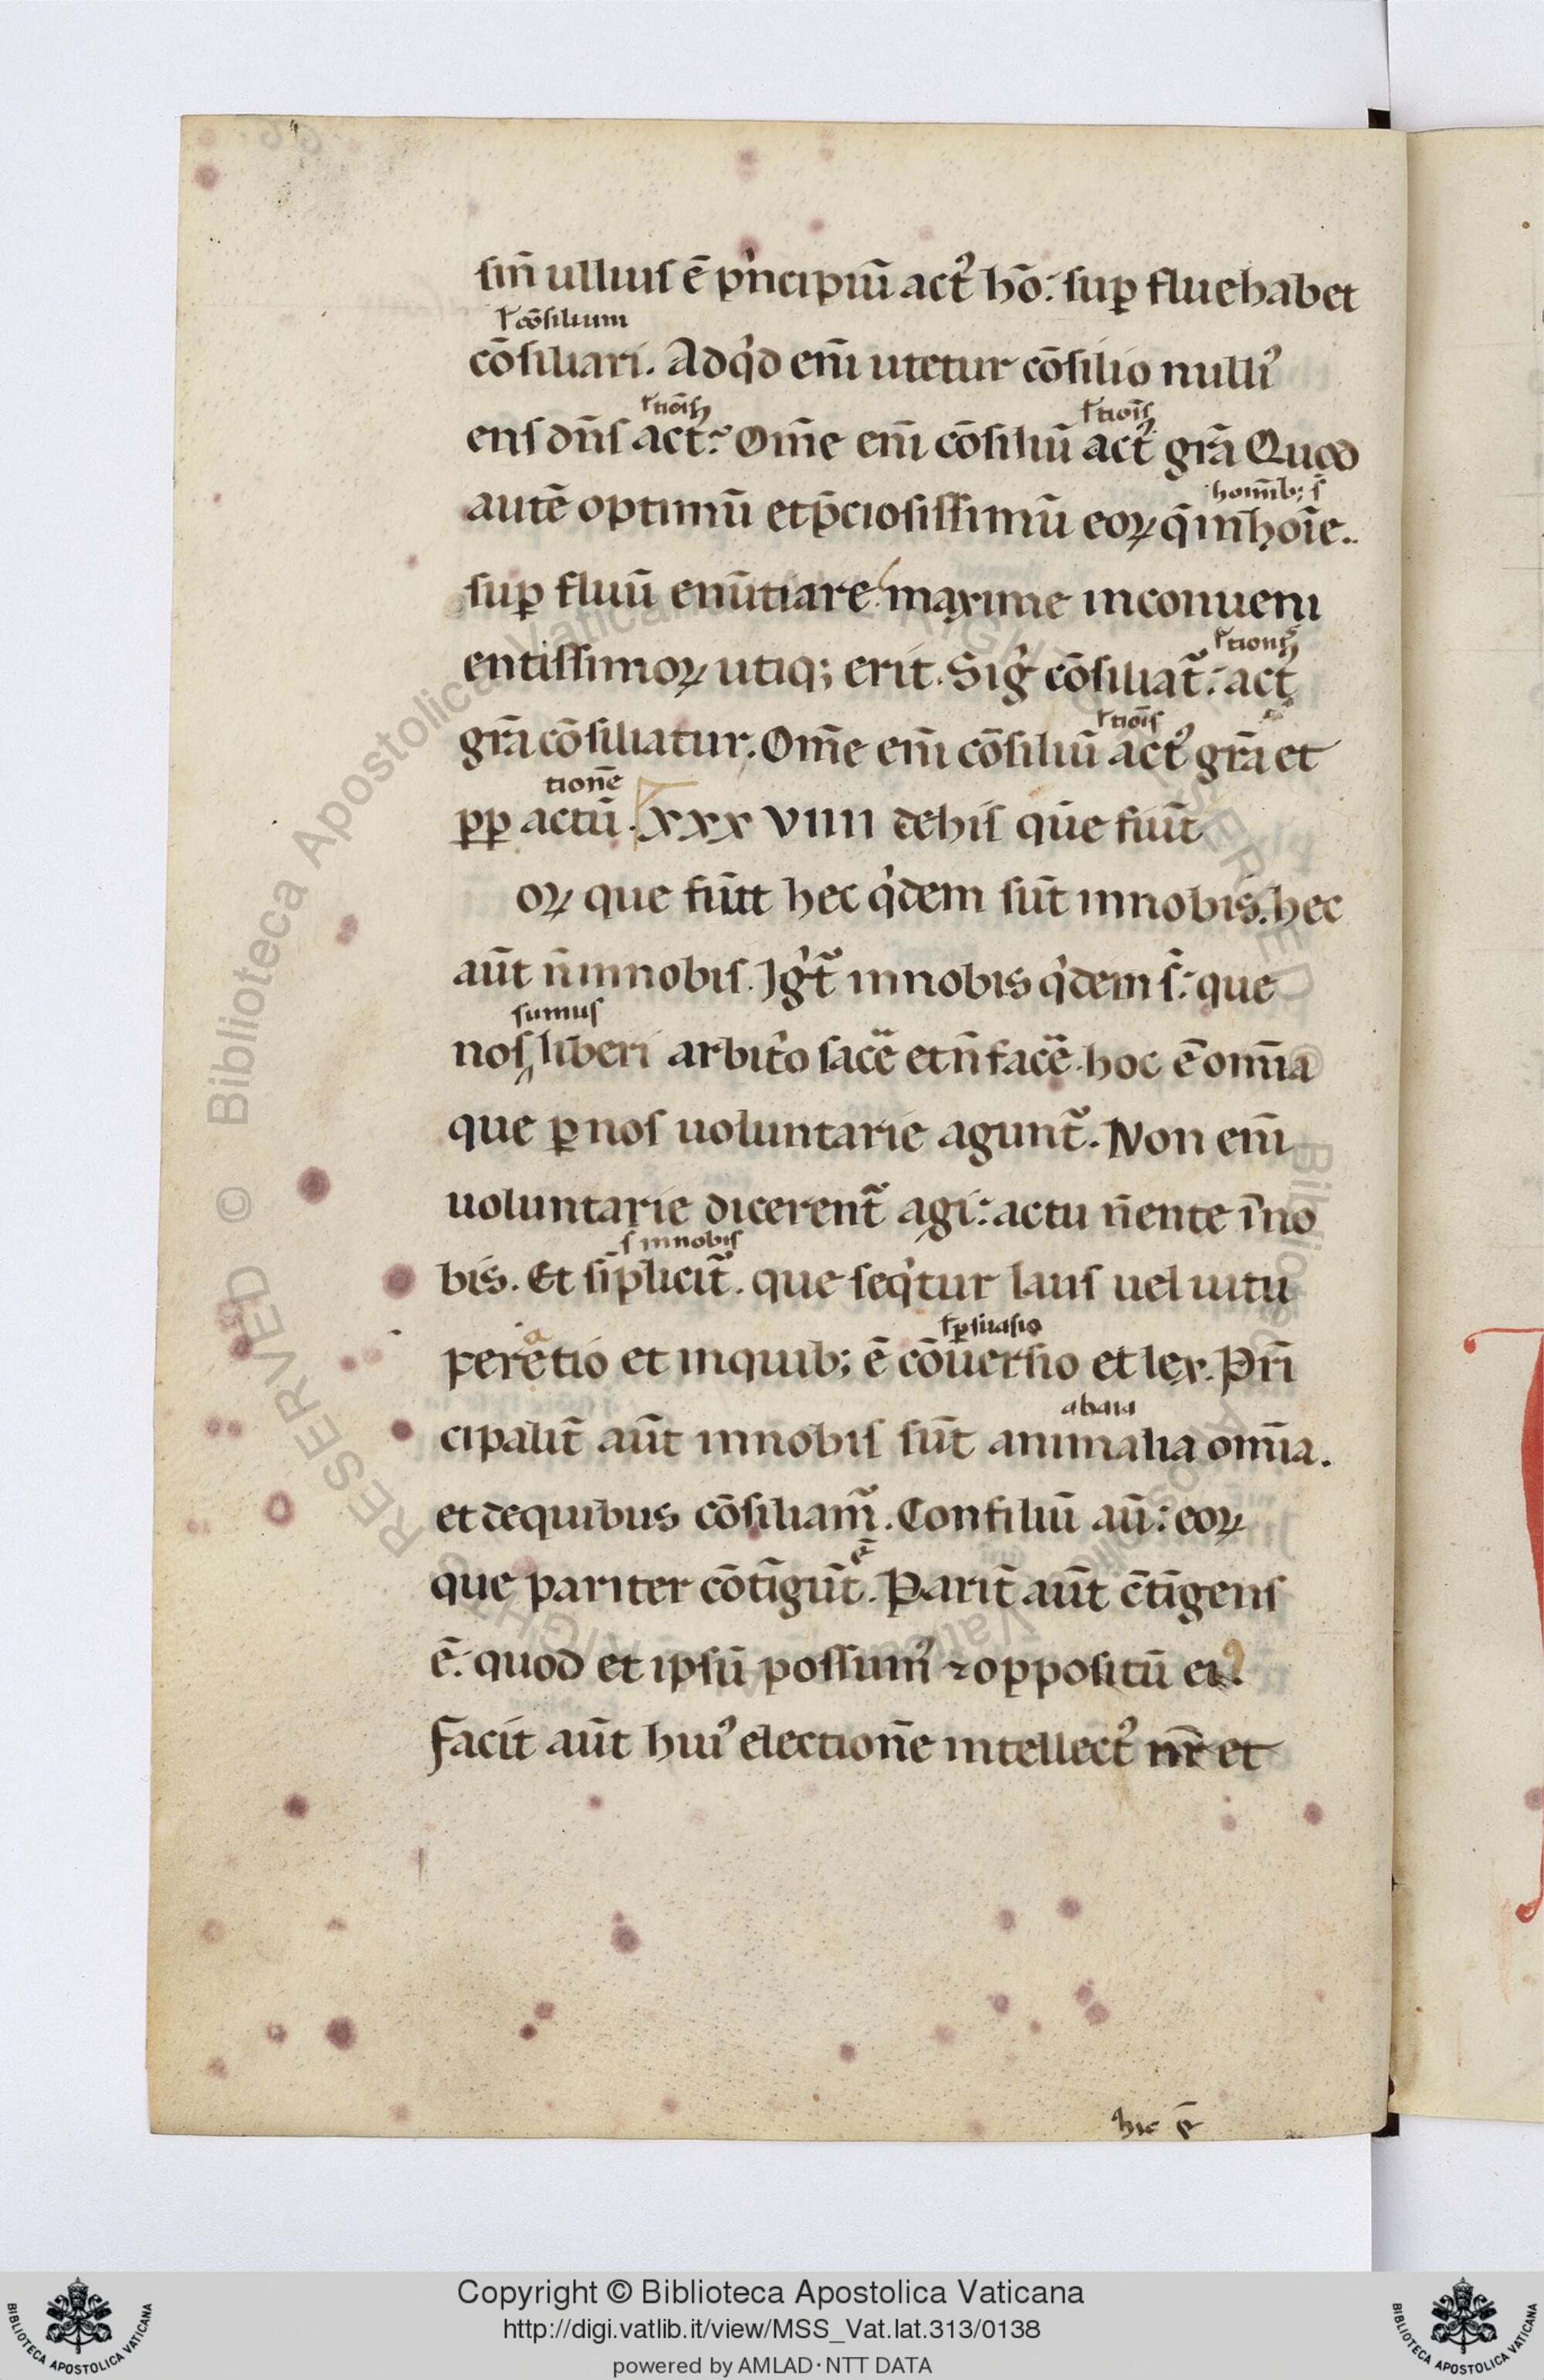 sin̄ ullius ē pͥncipiū actꝰ hō: suꝑ flue habet
ł cōsilium
cōsiliari. Adqͥd enī utetur cōsilio nulliꝰ
ł tiōis
ł tiōis
ens dn̄s act: Om̄e enī cōsiliū actꝰ grā Quod
homīb; s̄
autē optimū et p̄ciosissimū eoꝝ q̄ in hoīe..
suꝑ fluū enūtiare maxime inconueni
ł tionis
entissimoꝝ utiq; erit. Si gͥ cōsiliat᷑: act
ł tiōis
grā cōsiliatur. Om̄e enī cōsiliū actꝰ grā et
tionē
ꝑꝑ actū. xxx viiii de his que fiūt
oꝝ que fiūt hec qͥdem sūt in nobis. hec
aūt n̄ in nobis. Igͥt᷑ in nobis qͥdem s̄: que
sumus
nos liberi arbitͥo facē et n̄ facē. hoc ē omīa
que ꝑ nos uoluntarie agunt᷑. Non enī
uoluntarie dicerent᷑ agi: actu n̄ ente ī no
s̄ in nobis
bis. Et sīplicit᷑. que seqͥtur laus uel uitu
a
ł ꝑsuasio
peretio et in quib; ē cōuersio et lex. Prī
abaia
cipalit᷑ aūt in nobis sūt animalia omīa.
et de quibus cōsiliam᷑. Consiliū aū: eoꝝ
ē
que pariter cōtīgūt. Parit᷑ aūt c̄tīgens
ē: quod et ipsū possumꝰ ⁊ oppositū eiꝰ.
Facit aūt huiꝰ electionē intellectꝰ nr̄ et
hic ē
Copyright © Biblioteca Apostolica Vaticana
http://digi.vatlib.it/view/MSS_Vat.lat.313/0138
powered by AMLAD·NTT DATA
BIBLIOTECA APOSTOLICA VATICANA
BIBLIOTECA APOSTOLICA VATICANA